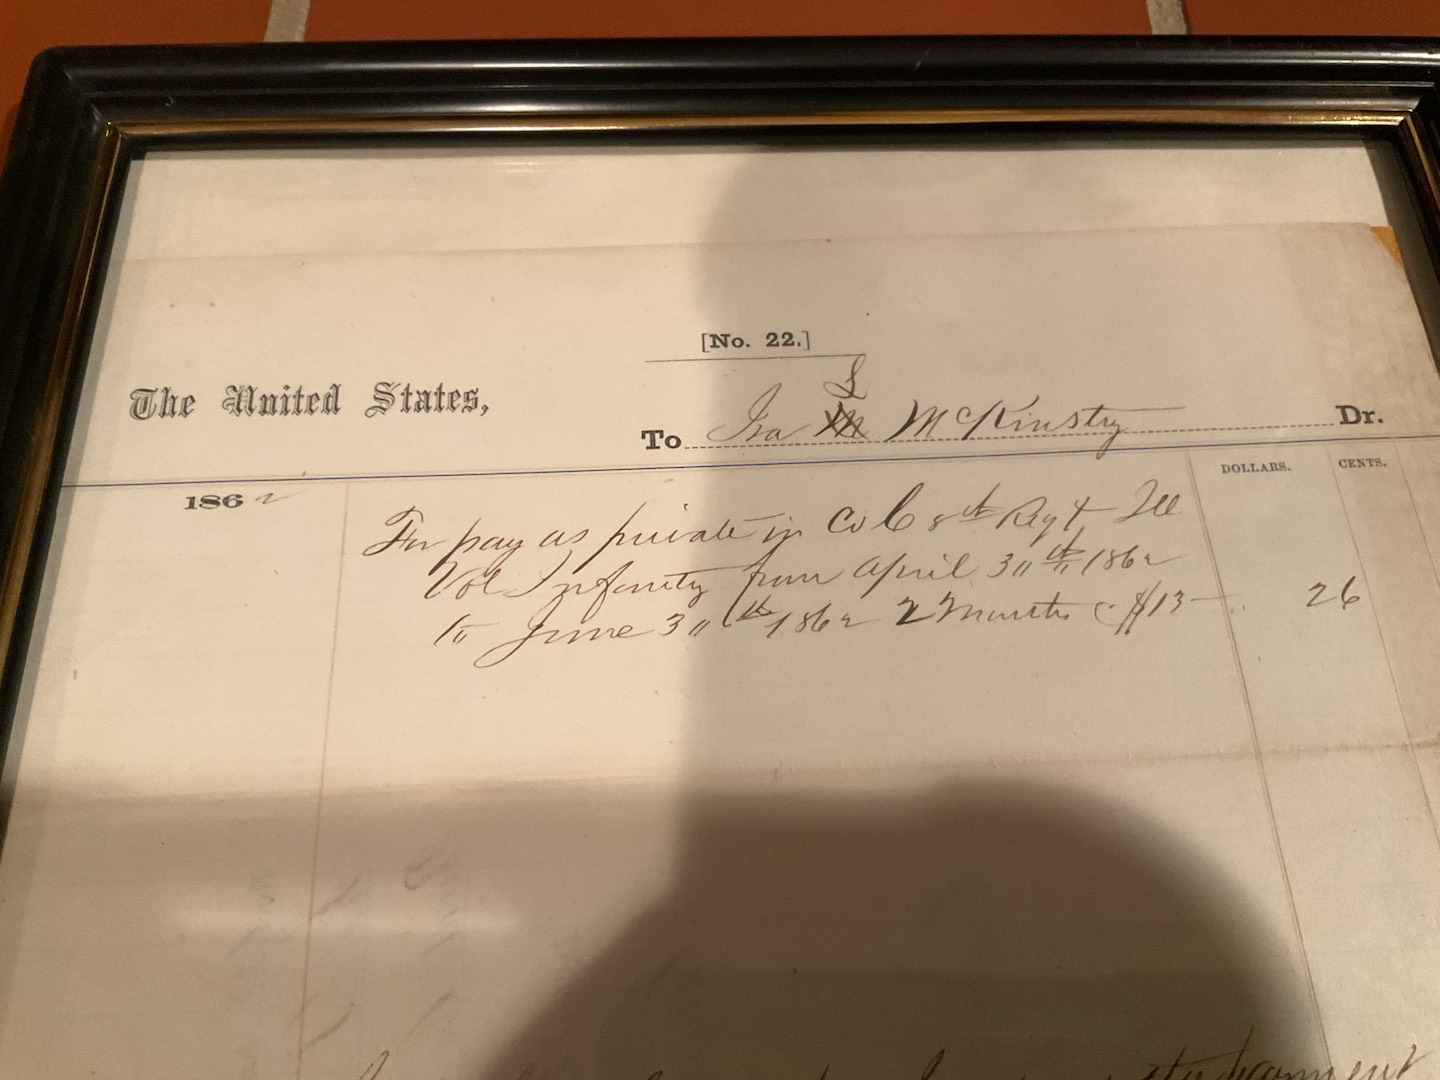 [No. 22.]
The United States,
To Ira L McKinstry Dr.
DOLLARS. CENTS.
1862
For pay as private in Co C 8th Regt Ill
Vol Infantry from April 30th 1862
to June 30th 1862 2 Months @ $13— 26